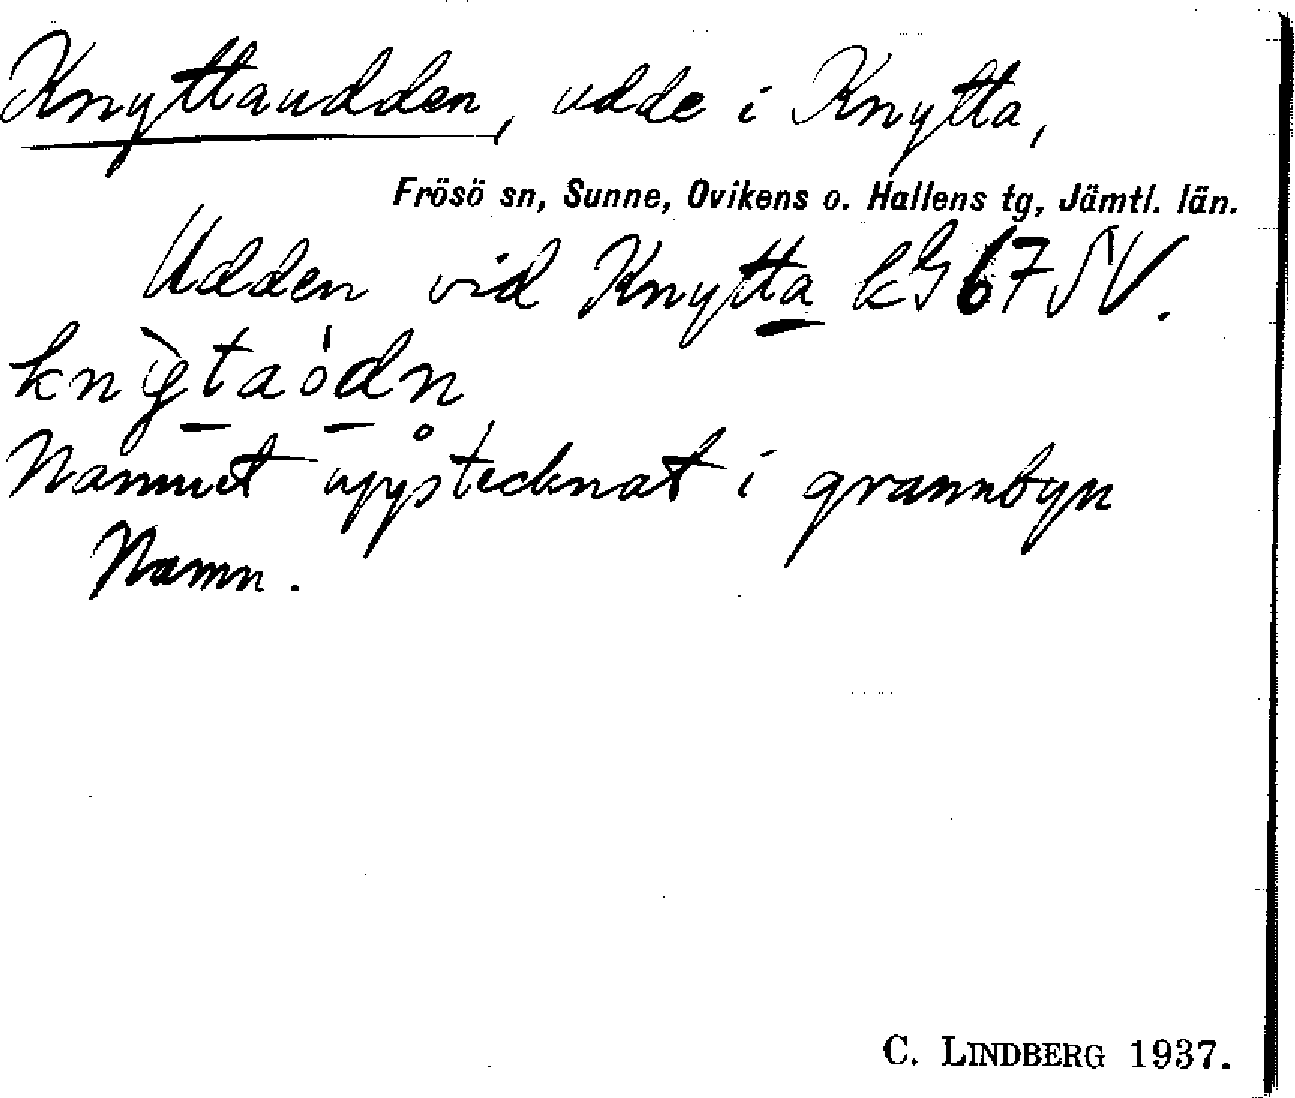 Knyttaudden, udde i Knytta,
Frösö sn, Sunne, Ovikens o. Hallens tg, Jämtl. län.
Udden vid Knytta kG 67 SV.
knỳtaódn̥
Namnet upptecknat i grannbyn
Namn.
C. LINDBERG 1937.